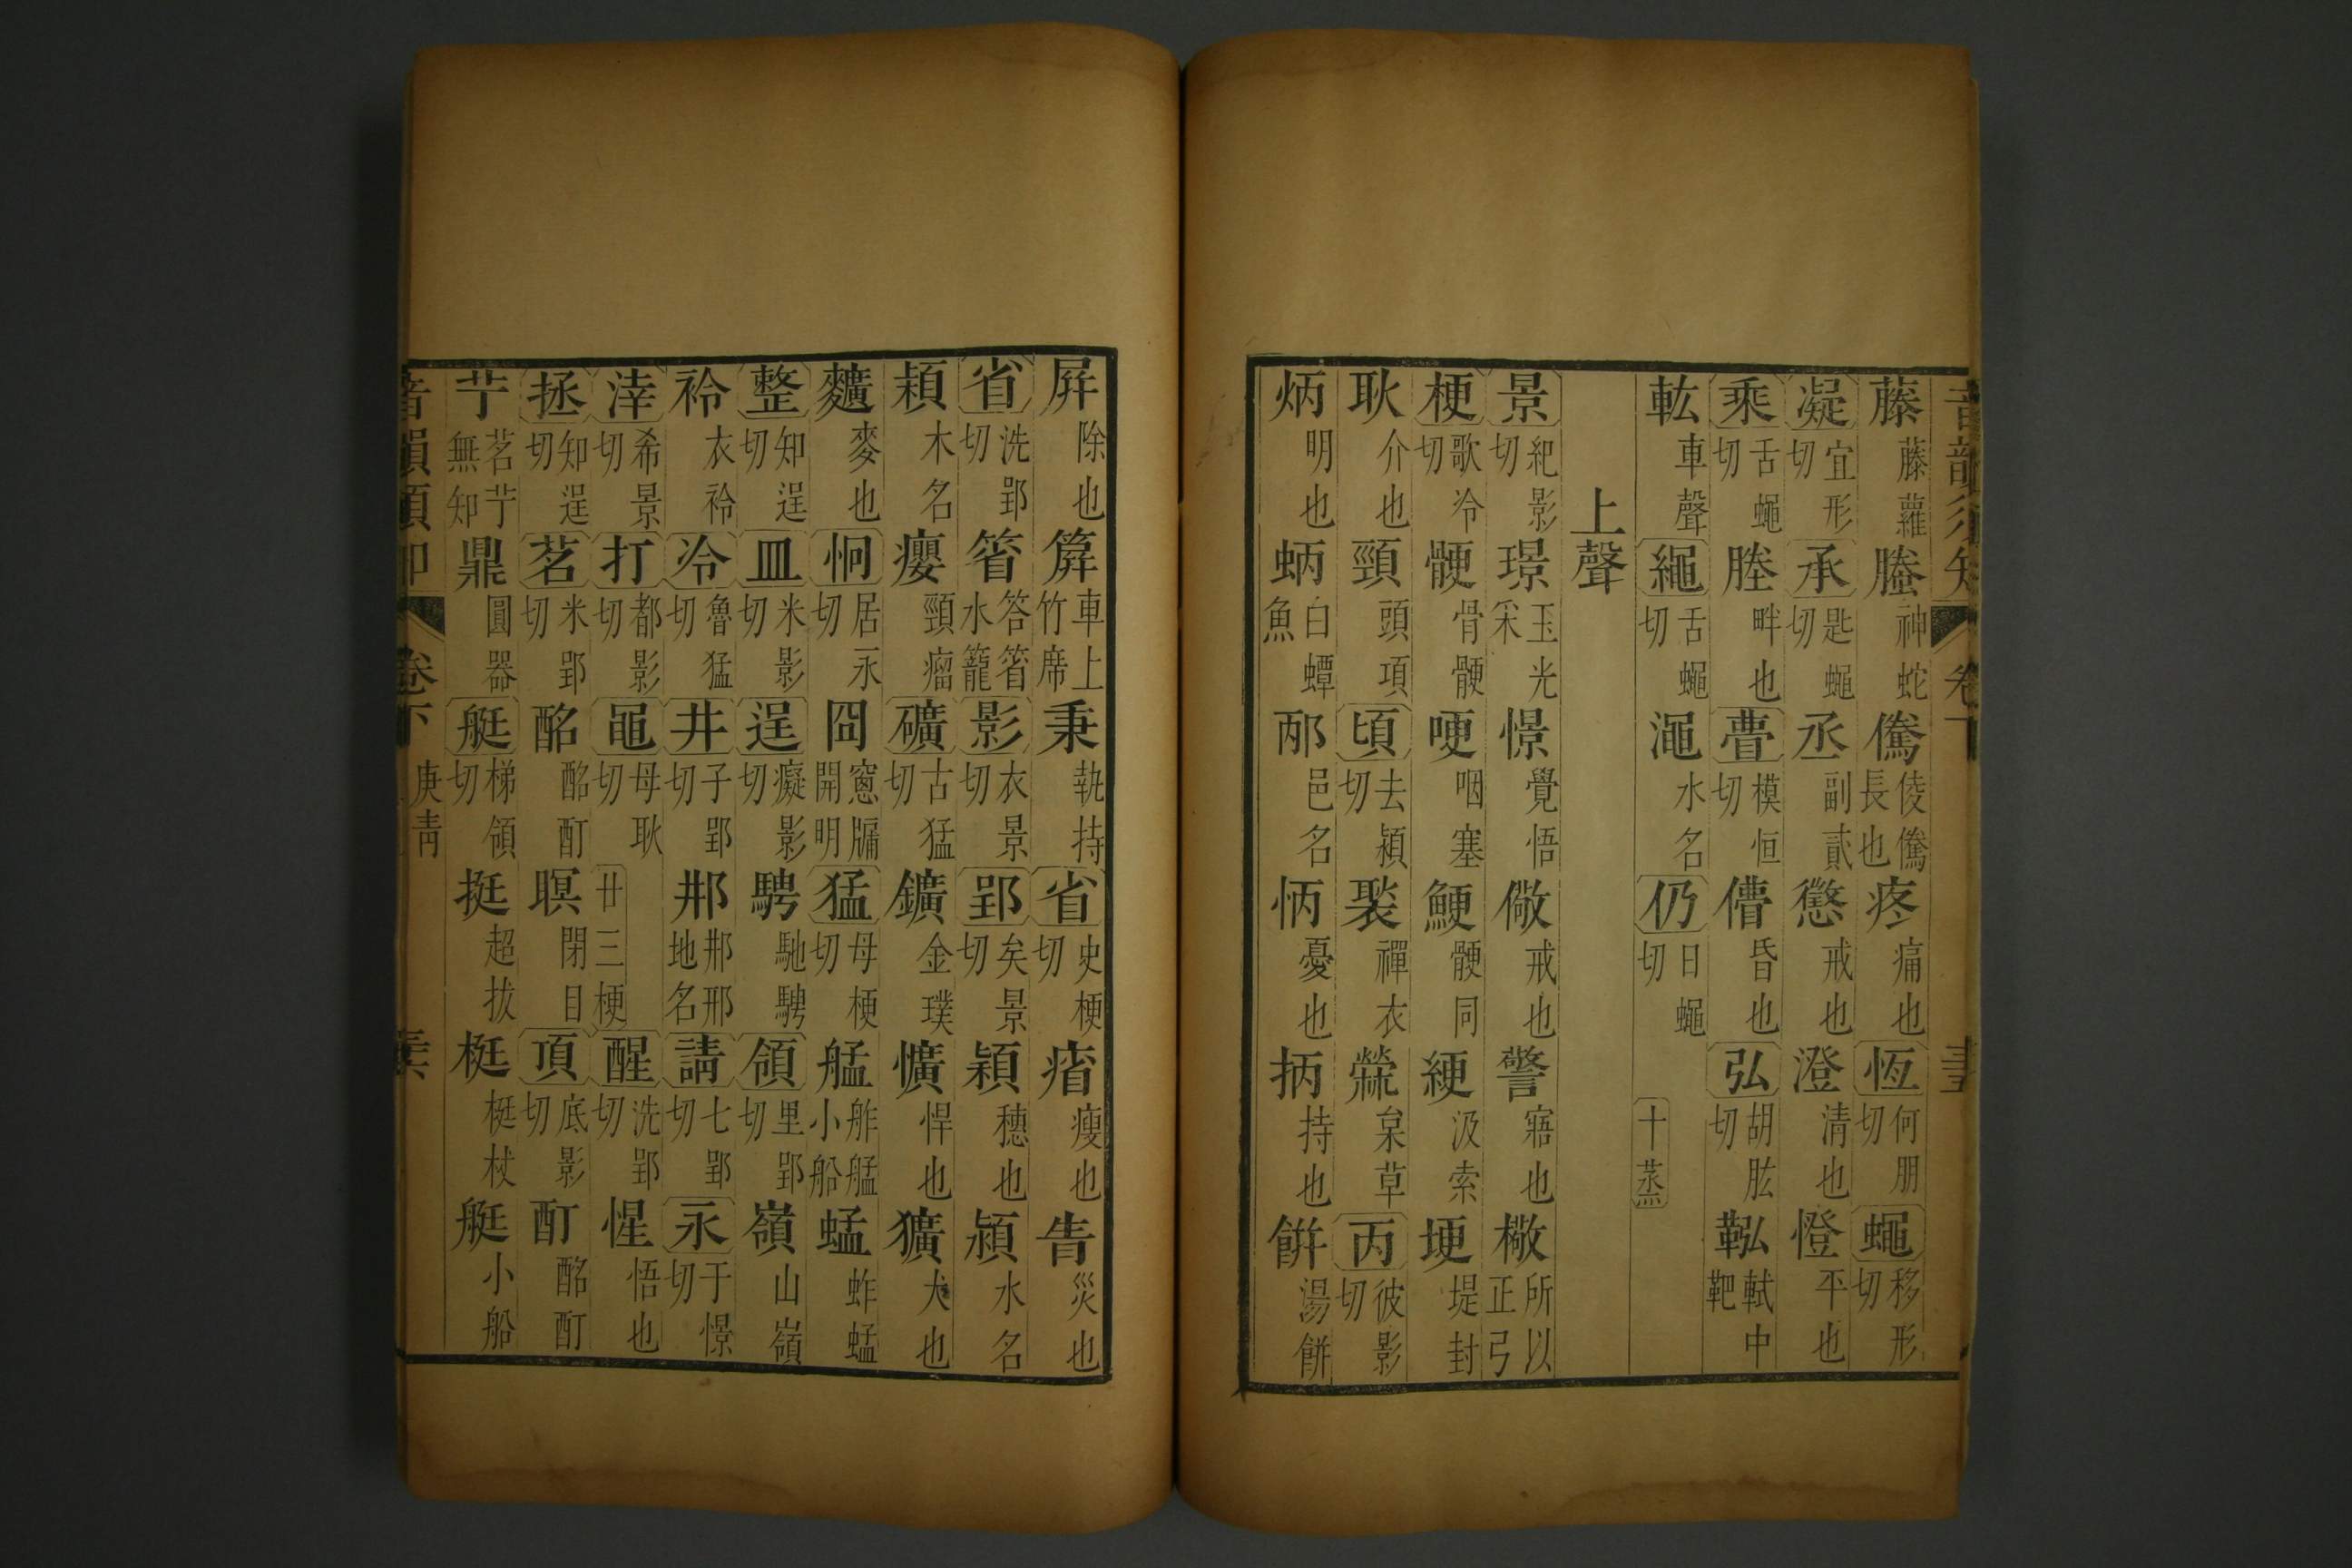 音韻須知 卷下
藤藤蘿螣神蛇㑺倰㑺長也疼痛也恆何朋切蠅移形切
凝宜形切承匙蠅切丞副貳懲戒也澄清也憕平也
乘舌蠅切塍畔也瞢模恒切儚昏也弘胡肱切鞃軾中靶
軚車聲繩舌蠅切澠水名仍日蠅切十蒸
上聲
景紀影切璟玉光采憬覺悟儆戒也警寤也檠所以正弓
梗歌冷切骾骨骾哽咽塞鯁骾同綆汲索埂堤封
耿介也頸頭項頃去潁切褧襌衣檾枲草丙彼影切
炳明也蛃白蟫魚邴邑名怲憂也抦持也餠湯餠
屛除也箳車上竹席秉執持省史梗切㾪瘦也眚災也
省洗郢切箵笭箵水籠影衣景切郢矣景切穎穗也潁水名
穎木名癭頸瘤礦古猛切鑛金璞懭悍也獷犬也
䵃麥也恫居永切囧窻牖開明猛母梗切艋舴艋小船蜢蚱蜢
整知逞切皿米影切逞癡影切騁馳騁領里郢切嶺山嶺
衿衣衿冷魯猛切井子郢切邢邢邢地名請七郢切永于憬切
涬希景切打都影切黽母耿切廿三梗醒洗郢切惺悟也
拯知逞切茗米郢切酩酩酊瞑閉目頂底影切酊酩酊
艼茗艼無知鼎圓器艇梯領切挺超拔梃梃杖艇小船
音韻須知 卷下 庚青